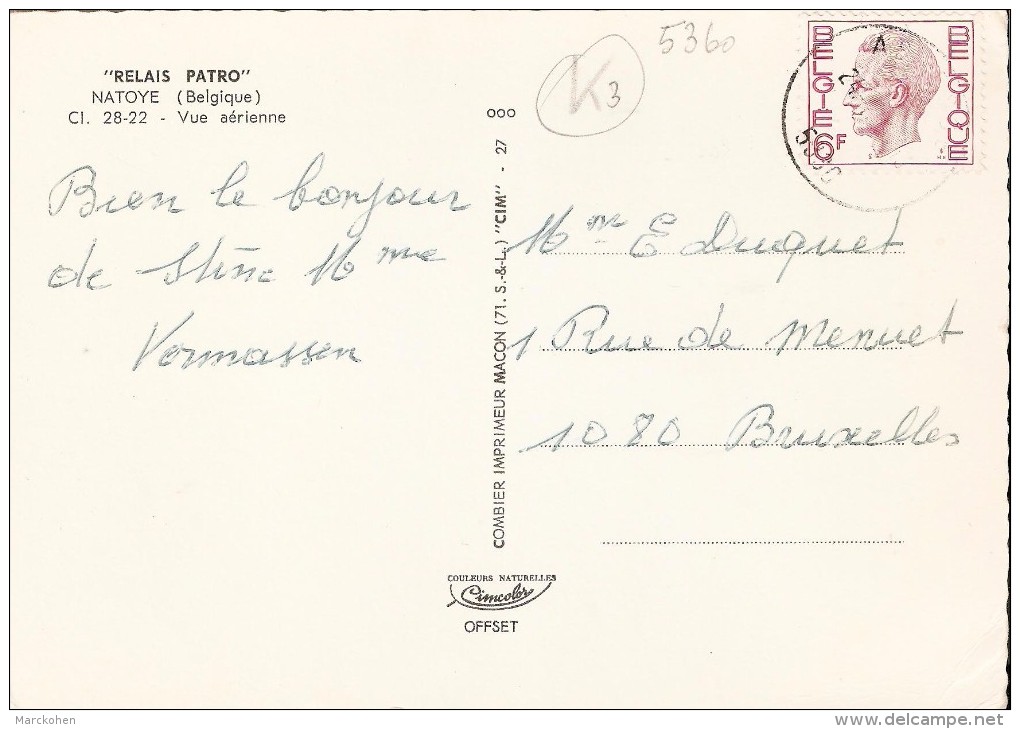 "RELAIS PATRO"
NATOYE (Belgique)
Cl. 28-22 - Vue aérienne
Bien le bonjour
de Mme
Vermassen
COMBIER IMPRIMEUR MACON (71. S.-&-L.) "CIM" - 27
ooo
COULEURS NATURELLES
Cimcolor
OFFSET
K 3
5360
BELGIE
6F
BELGIQUE
A
Mme E Duquet
1 Rue de Menuet
1080 Bruxelles
Marckohen
www.delcampe.net